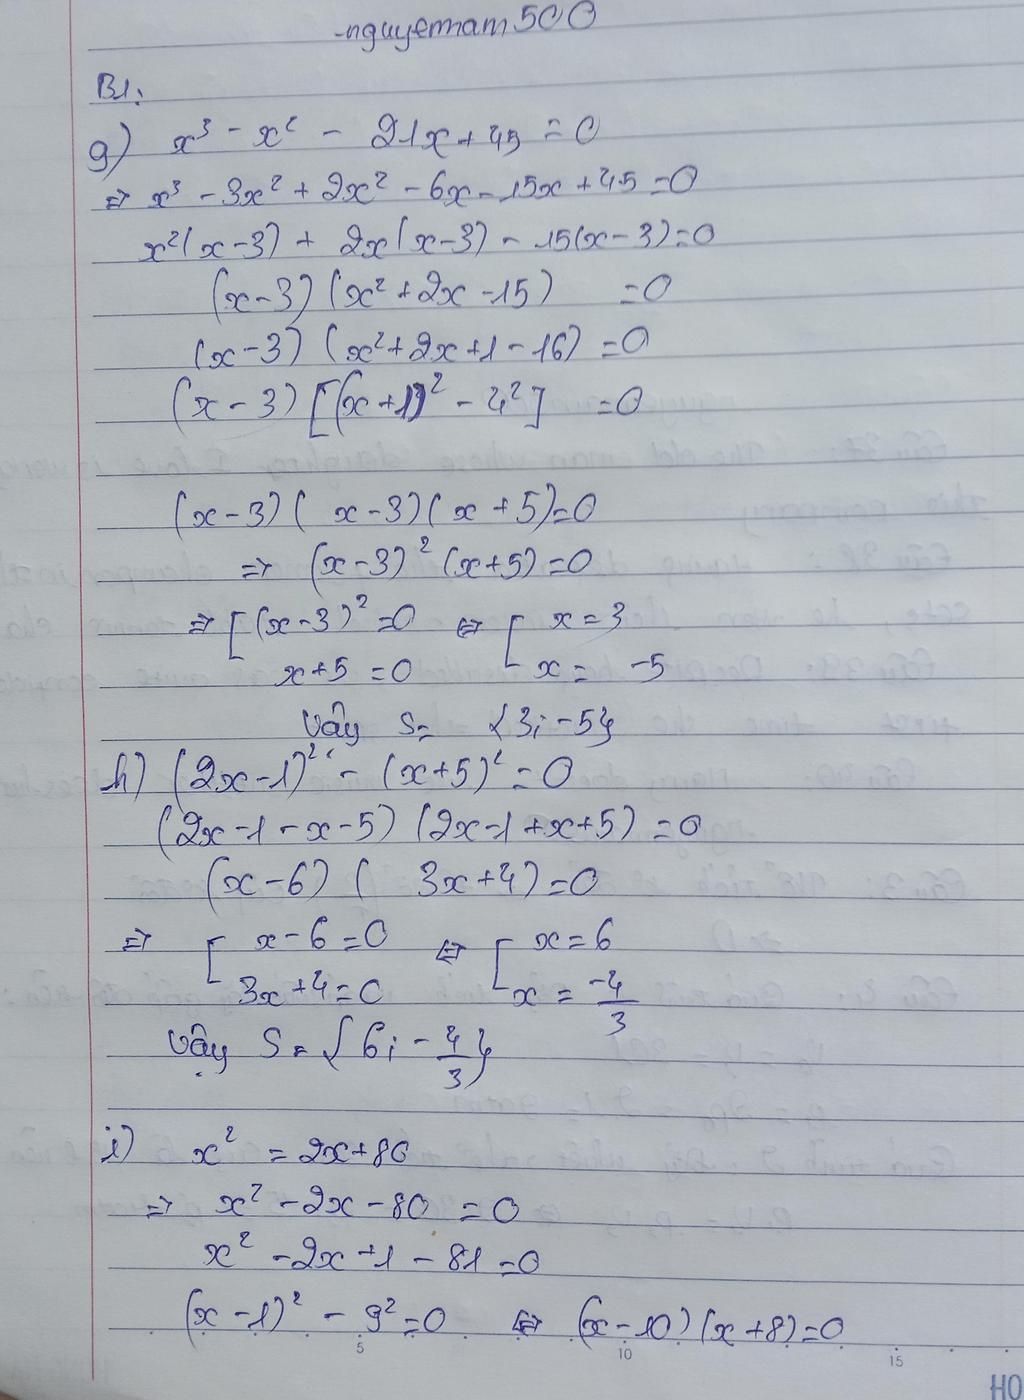 nguyetnam500
B1:
g) x³ - x² - 21x + 45 = 0
⇒ x³ - 3x² + 2x² - 6x - 15x + 45 = 0
x²(x-3) + 2x(x-3) - 15(x-3) = 0
(x-3)(x²+2x-15) = 0
(x-3)(x²+2x+1-16) = 0
(x-3)[(x+1)² - 4²] = 0
(x-3)(x-3)(x+5)=0
⇒ (x-3)²(x+5)=0
⇒ [ (x-3)²=0 ⇔ [ x=3
x+5=0 x= -5
Vậy S= {3;-5}
h) (2x-1)² - (x+5)² = 0
(2x-1-x-5)(2x-1+x+5)=0
(x-6)(3x+4)=0
⇒ [ x-6=0 ⇔ [ x=6
3x+4=0 x = -4/3
Vậy S= {6; -4/3}
i) x² = 2x+80
⇒ x² -2x-80 = 0
x² -2x+1-81=0
(x-1)² - 9²=0 ⇔ (x-10)(x+8)=0
5 10 15
HO